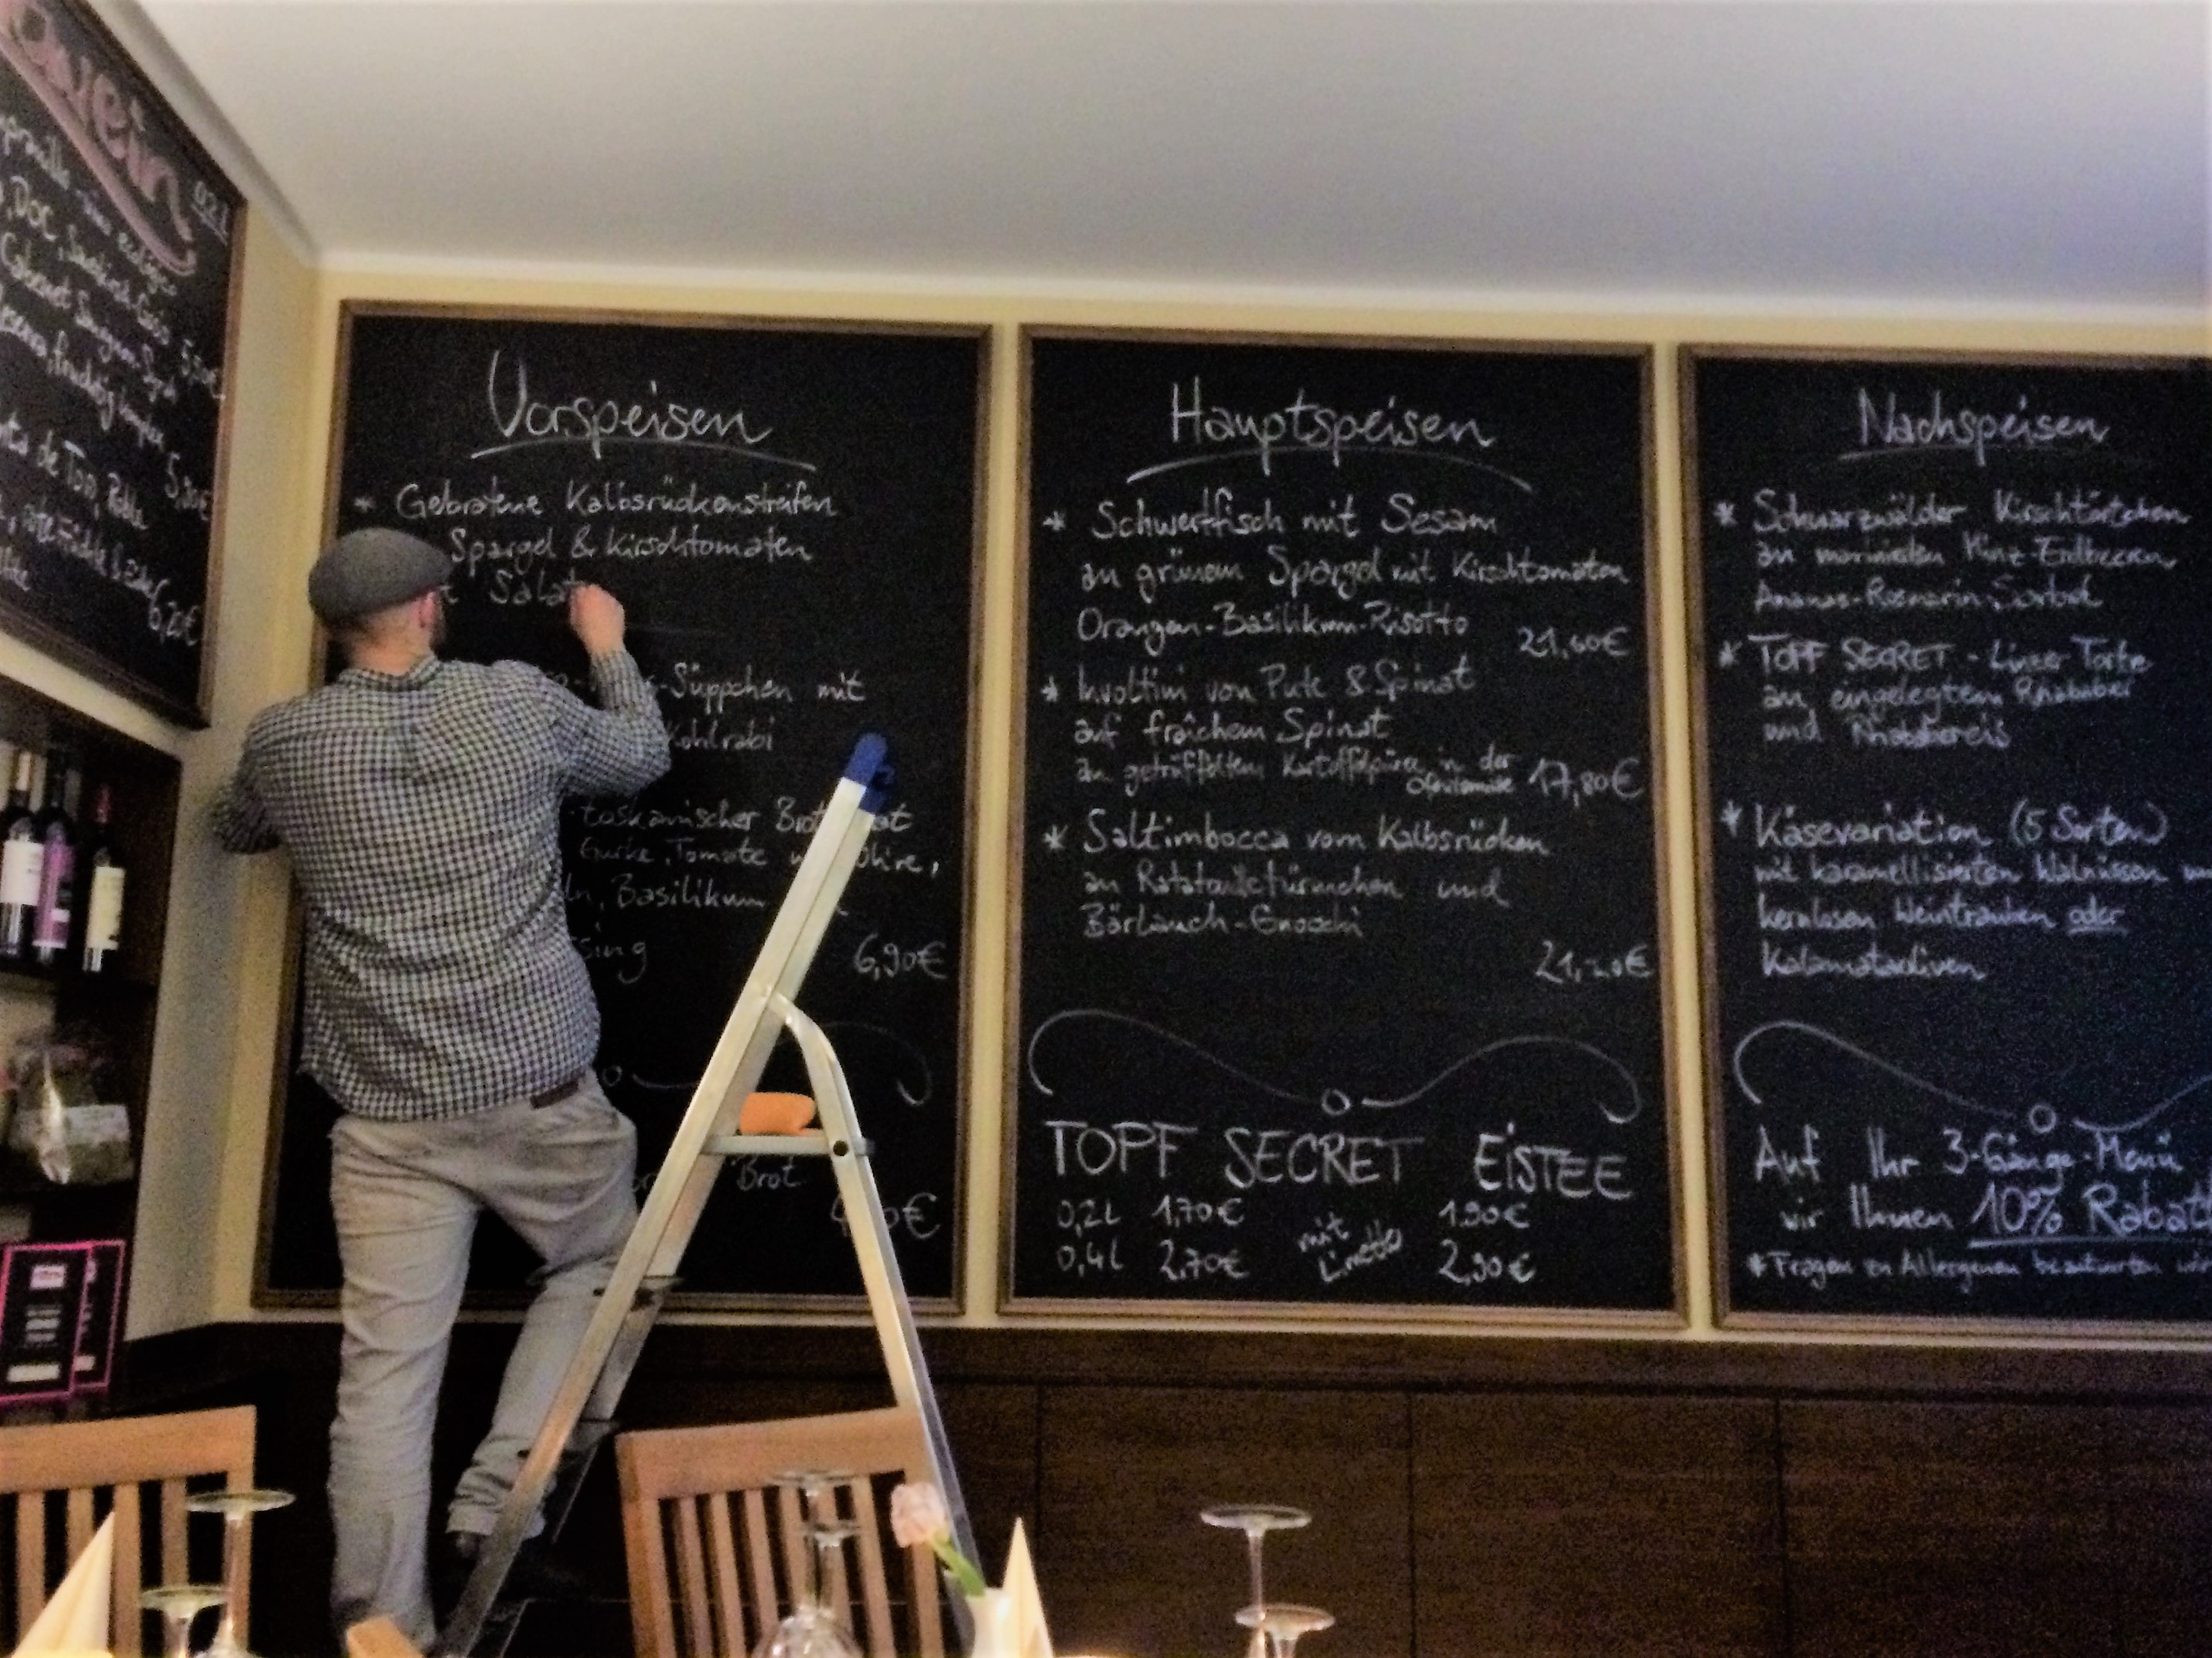 wein
0,2l
DOC,
Cabernet Sauvignon,
5,20€
de Toro,
6,20€
Vorspeisen
* Gebratene Kalbsrückenstreifen
Spargel & Kirschtomaten
Salat
-Süppchen mit
Kohlrabi
toskanischer
Gurke, Tomate
Basilikum
6,90€
Brot
Hauptspeisen
* Schwertfisch mit Sesam
an grünem Spargel mit Kirschtomaten
Orangen-Basilikum-Risotto
21,60€
* Involtini von Pute & Spinat
auf fraîchem Spinat
an getrüffeltem Kartoffelpüree in der
17,80€
* Saltimbocca vom Kalbsrücken
an Ratatouilletürmchen und
Bärlauch-Gnocchi
21,20€
TOPF SECRET EiSTEE
0,2L 1,70€ mit 1.90€
0,4L 2,70€ Limette 2,90€
Nachspeisen
* Schwarzwälder Kirschtörtchen
an marinierten Minz-Erdbeeren
Ananas-Rosmarin-Sorbet
* TOPF SECRET - Linzer Torte
an eingelegtem Rhabarber
und Rhabarbereis
* Käsevariation (5 Sorten)
mit karamellisierten Walnüssen
kernlosen Weintrauben oder
Kalamataoliven
Auf Ihr 3-Gänge-Menü
wir Ihnen 10% Rabat
* Fragen zu Allergenen beantworten wir